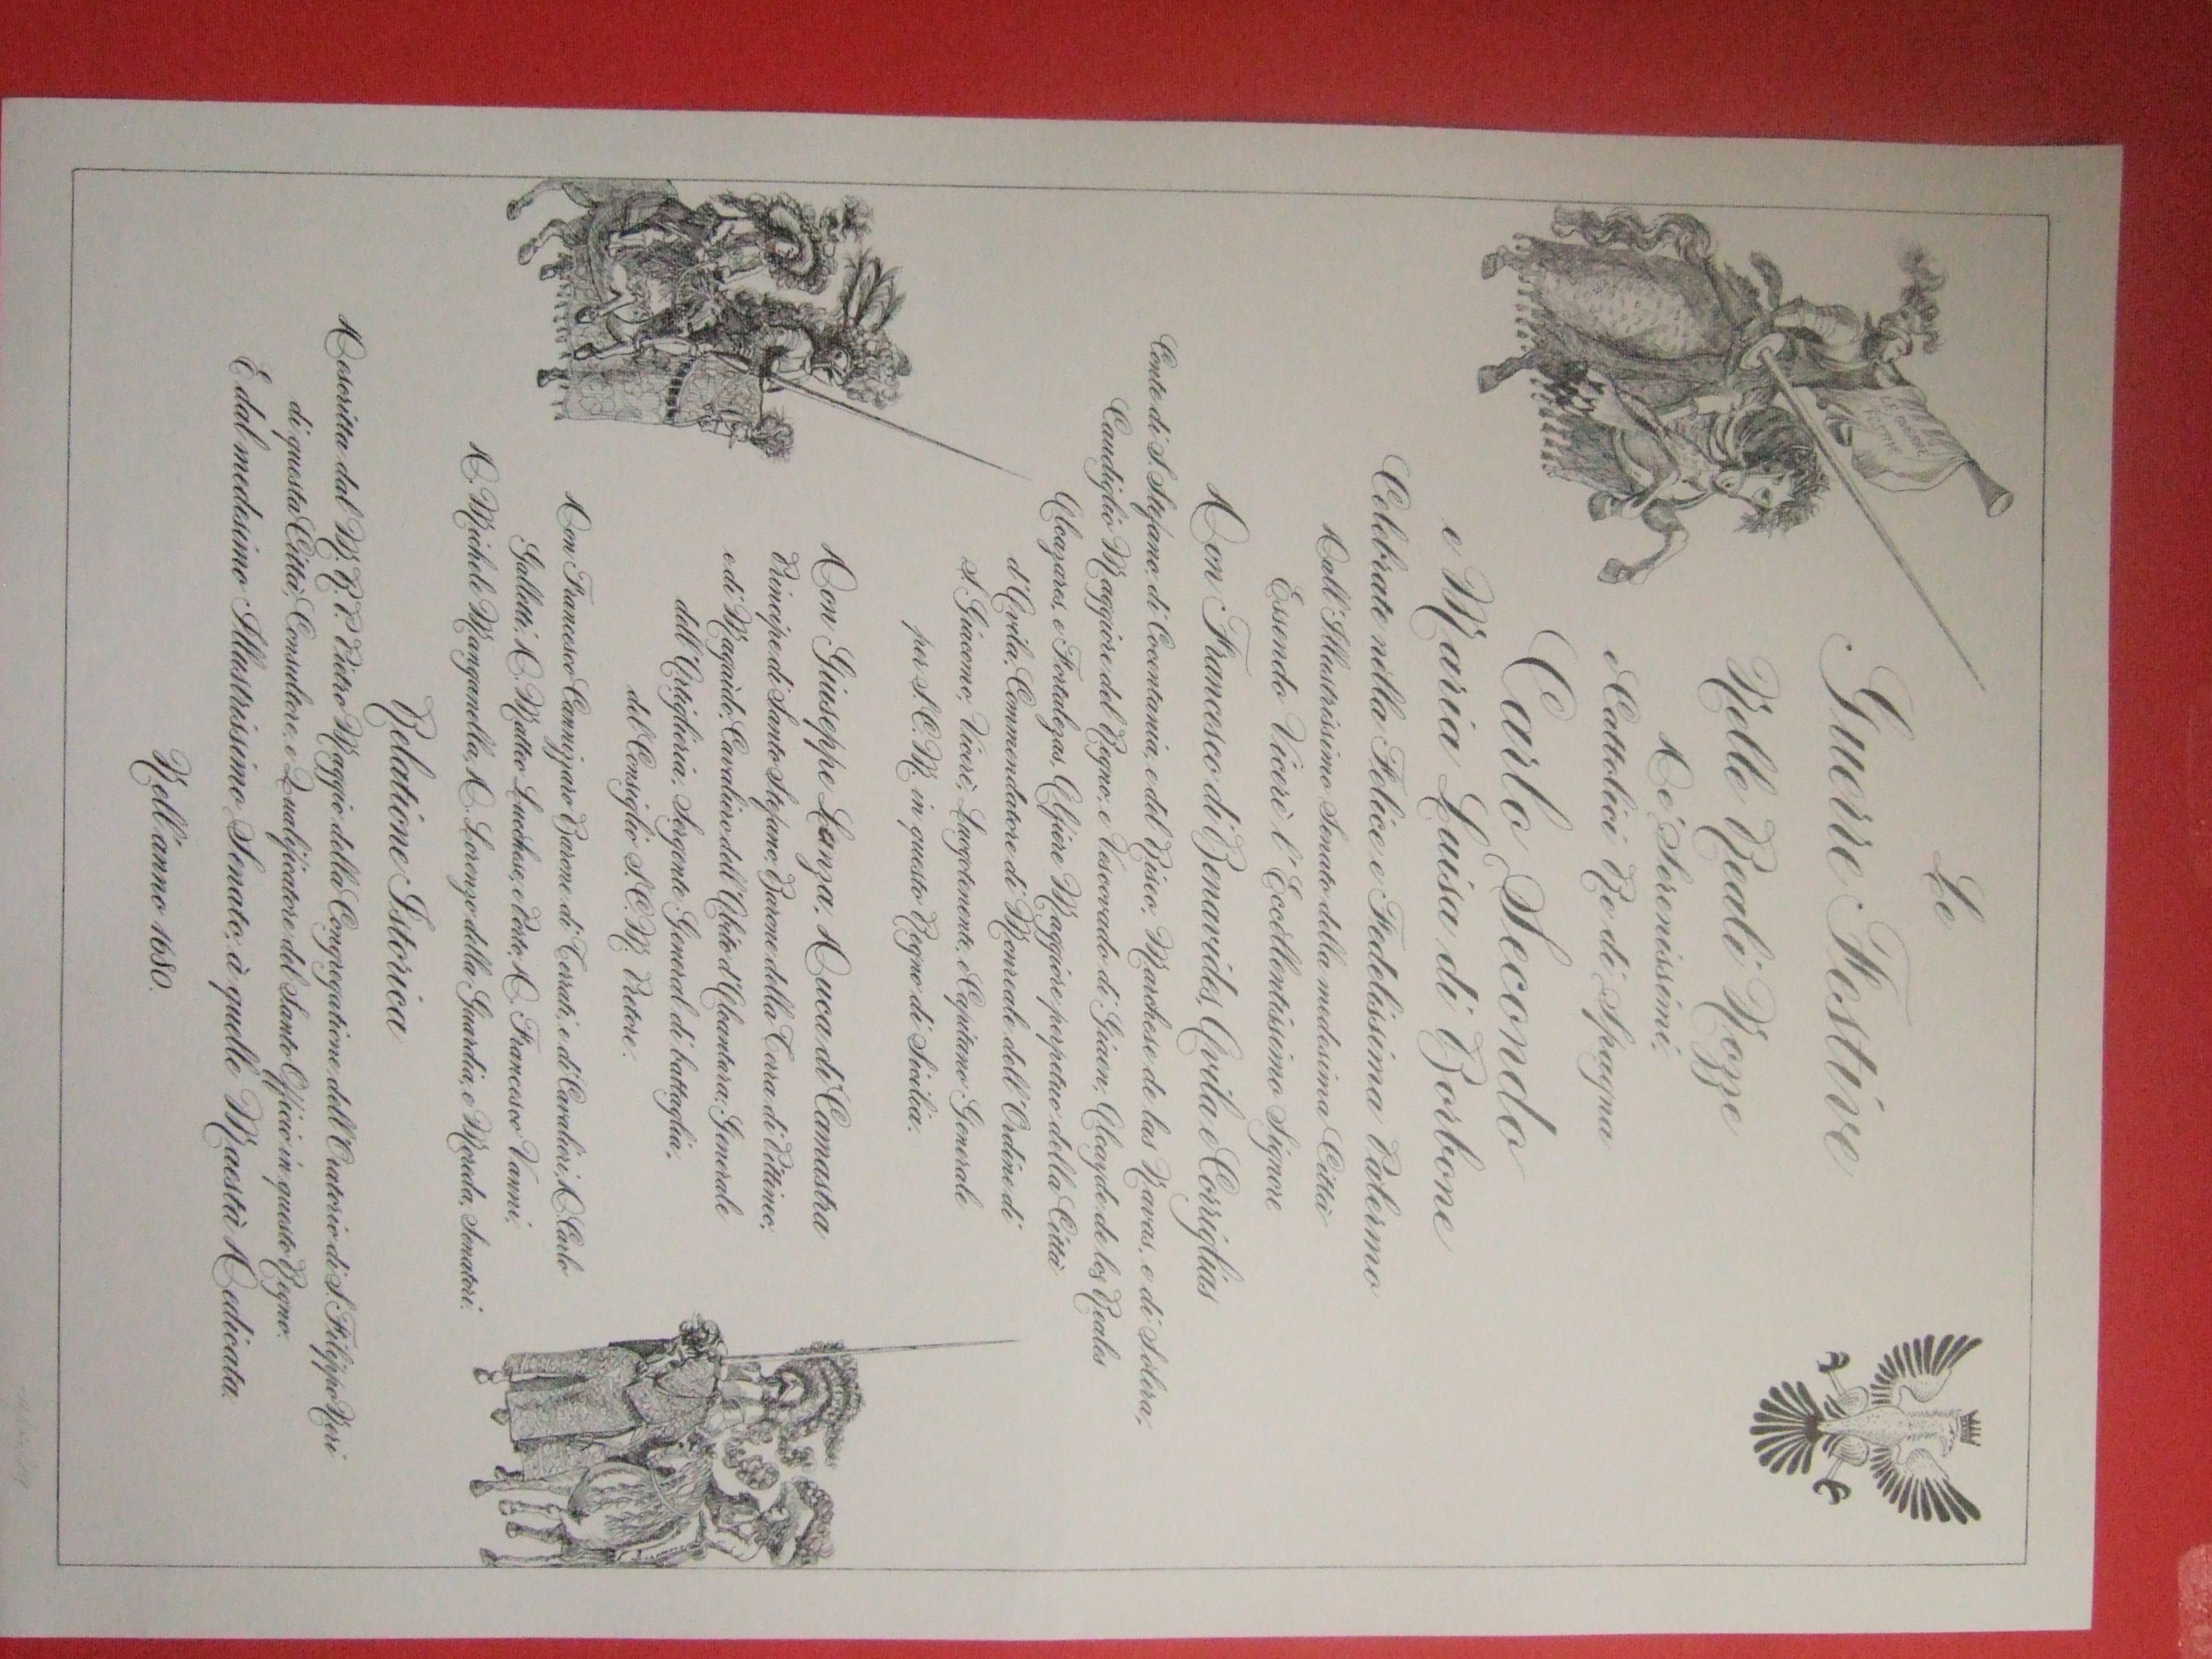 Le
Guerre Festive
Nelle Reali Nozze
De' Serenissimi,
e Cattolici Re di Spagna
Carlo Secondo
e Maria Luisa di Borbone
Celebrate nella Felice e Fedelissima Palermo
Dall'Illustrissimo Senato della medesima Città
Essendo Vicerè l'Eccellentissimo Signore
Don Francesco di Benavides, Avila e Corriglias
Conte di S. Stefano, di Cocentania, e del Risco, Marchese de las Navas, e di Solera,
Caudiglio Maggiore del Regno, e Vescovado di Giaen, Alcayde de los Reales
Alcazares, e Fortalezas, Alfiere Maggiore perpetuo della Città
d'Ovila, Commendatore di Monreale dell'Ordine di
S. Giacomo, Vicerè, Luogotenente, e Capitano Generale
per S.C.M. in questo Regno di Sicilia.
Don Giuseppe Lanza, Duca di Camastra
Principe di Santo Stefano, Barone della Terra di Pittineo,
e di Magaido, Cavaliero dell'Abito d'Alcantara, Generale
dell'Artiglieria, Sergente General di battaglia,
del Consiglio S.C.M. Pretore.
Don Francesco Cannizzaro Barone di Torati, e di Cavalieri, D. Carlo
Galletti, D. Matteo Lucchese, e Porto, D. Francesco Vanni,
D. Michele Manganella, D. Lorenzo della Guardia, e Moreda, Senatori.
Relatione Istorica
Descritta dal M.R.P. Pietro Maggio della Congregatione dell'Oratorio di S. Filippo Neri
di questa Città, Consultore, e Qualificatore del Santo Officio in questo Regno.
E dal medesimo Illustrissimo Senato, à quelle Maestà Dedicata.
Nell'anno 1680.